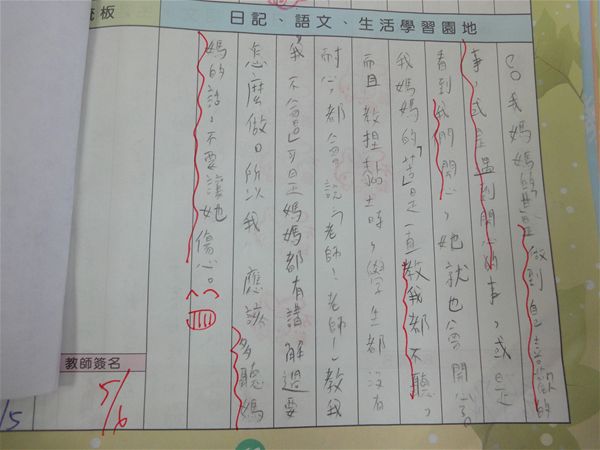 日記、語文、生活學習園地
我媽媽的「樂」是做到自己喜歡做的
事,或是遇到開心的事,或是
看到我們開心,她就也會開心。
我媽媽的「苦」是一直教我都不聽,
而且教捏黏土時,學生都沒有
耐心,都會說「老師!老師!」教我
我不會這可是媽媽都有講解過要
怎麼做。所以我應該多聽媽
媽的話,不要讓她傷心。
教師簽名
5/6